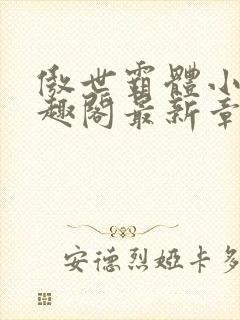 傲世霸體小
趣閣最新章
安德烈婭卡多